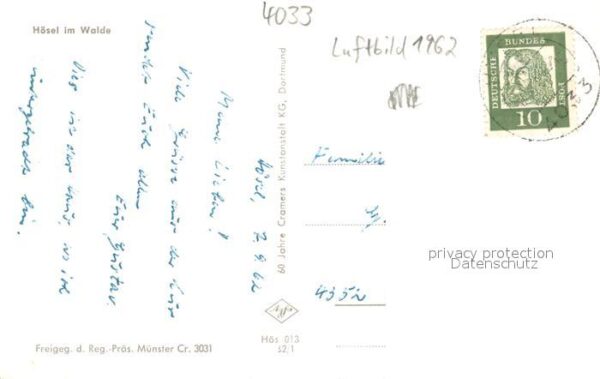 Hösel im Walde
4033
Luftbild 1962
DEUTSCHE BUNDES POST
10
4033
60 Jahre Cramers Kunstanstalt KG, Dortmund
Hösel, 2.9.62
Meine Lieben!
Viele Grüsse aus der Kur
sendet Euch allen
Euer Gustav.
Dies ist das Haus, wo ich
untergebracht bin.
Familie
privacy protection
Datenschutz
4352
Freigeg. d. Reg.-Präs. Münster Cr. 3031
Hös 013
s2;1